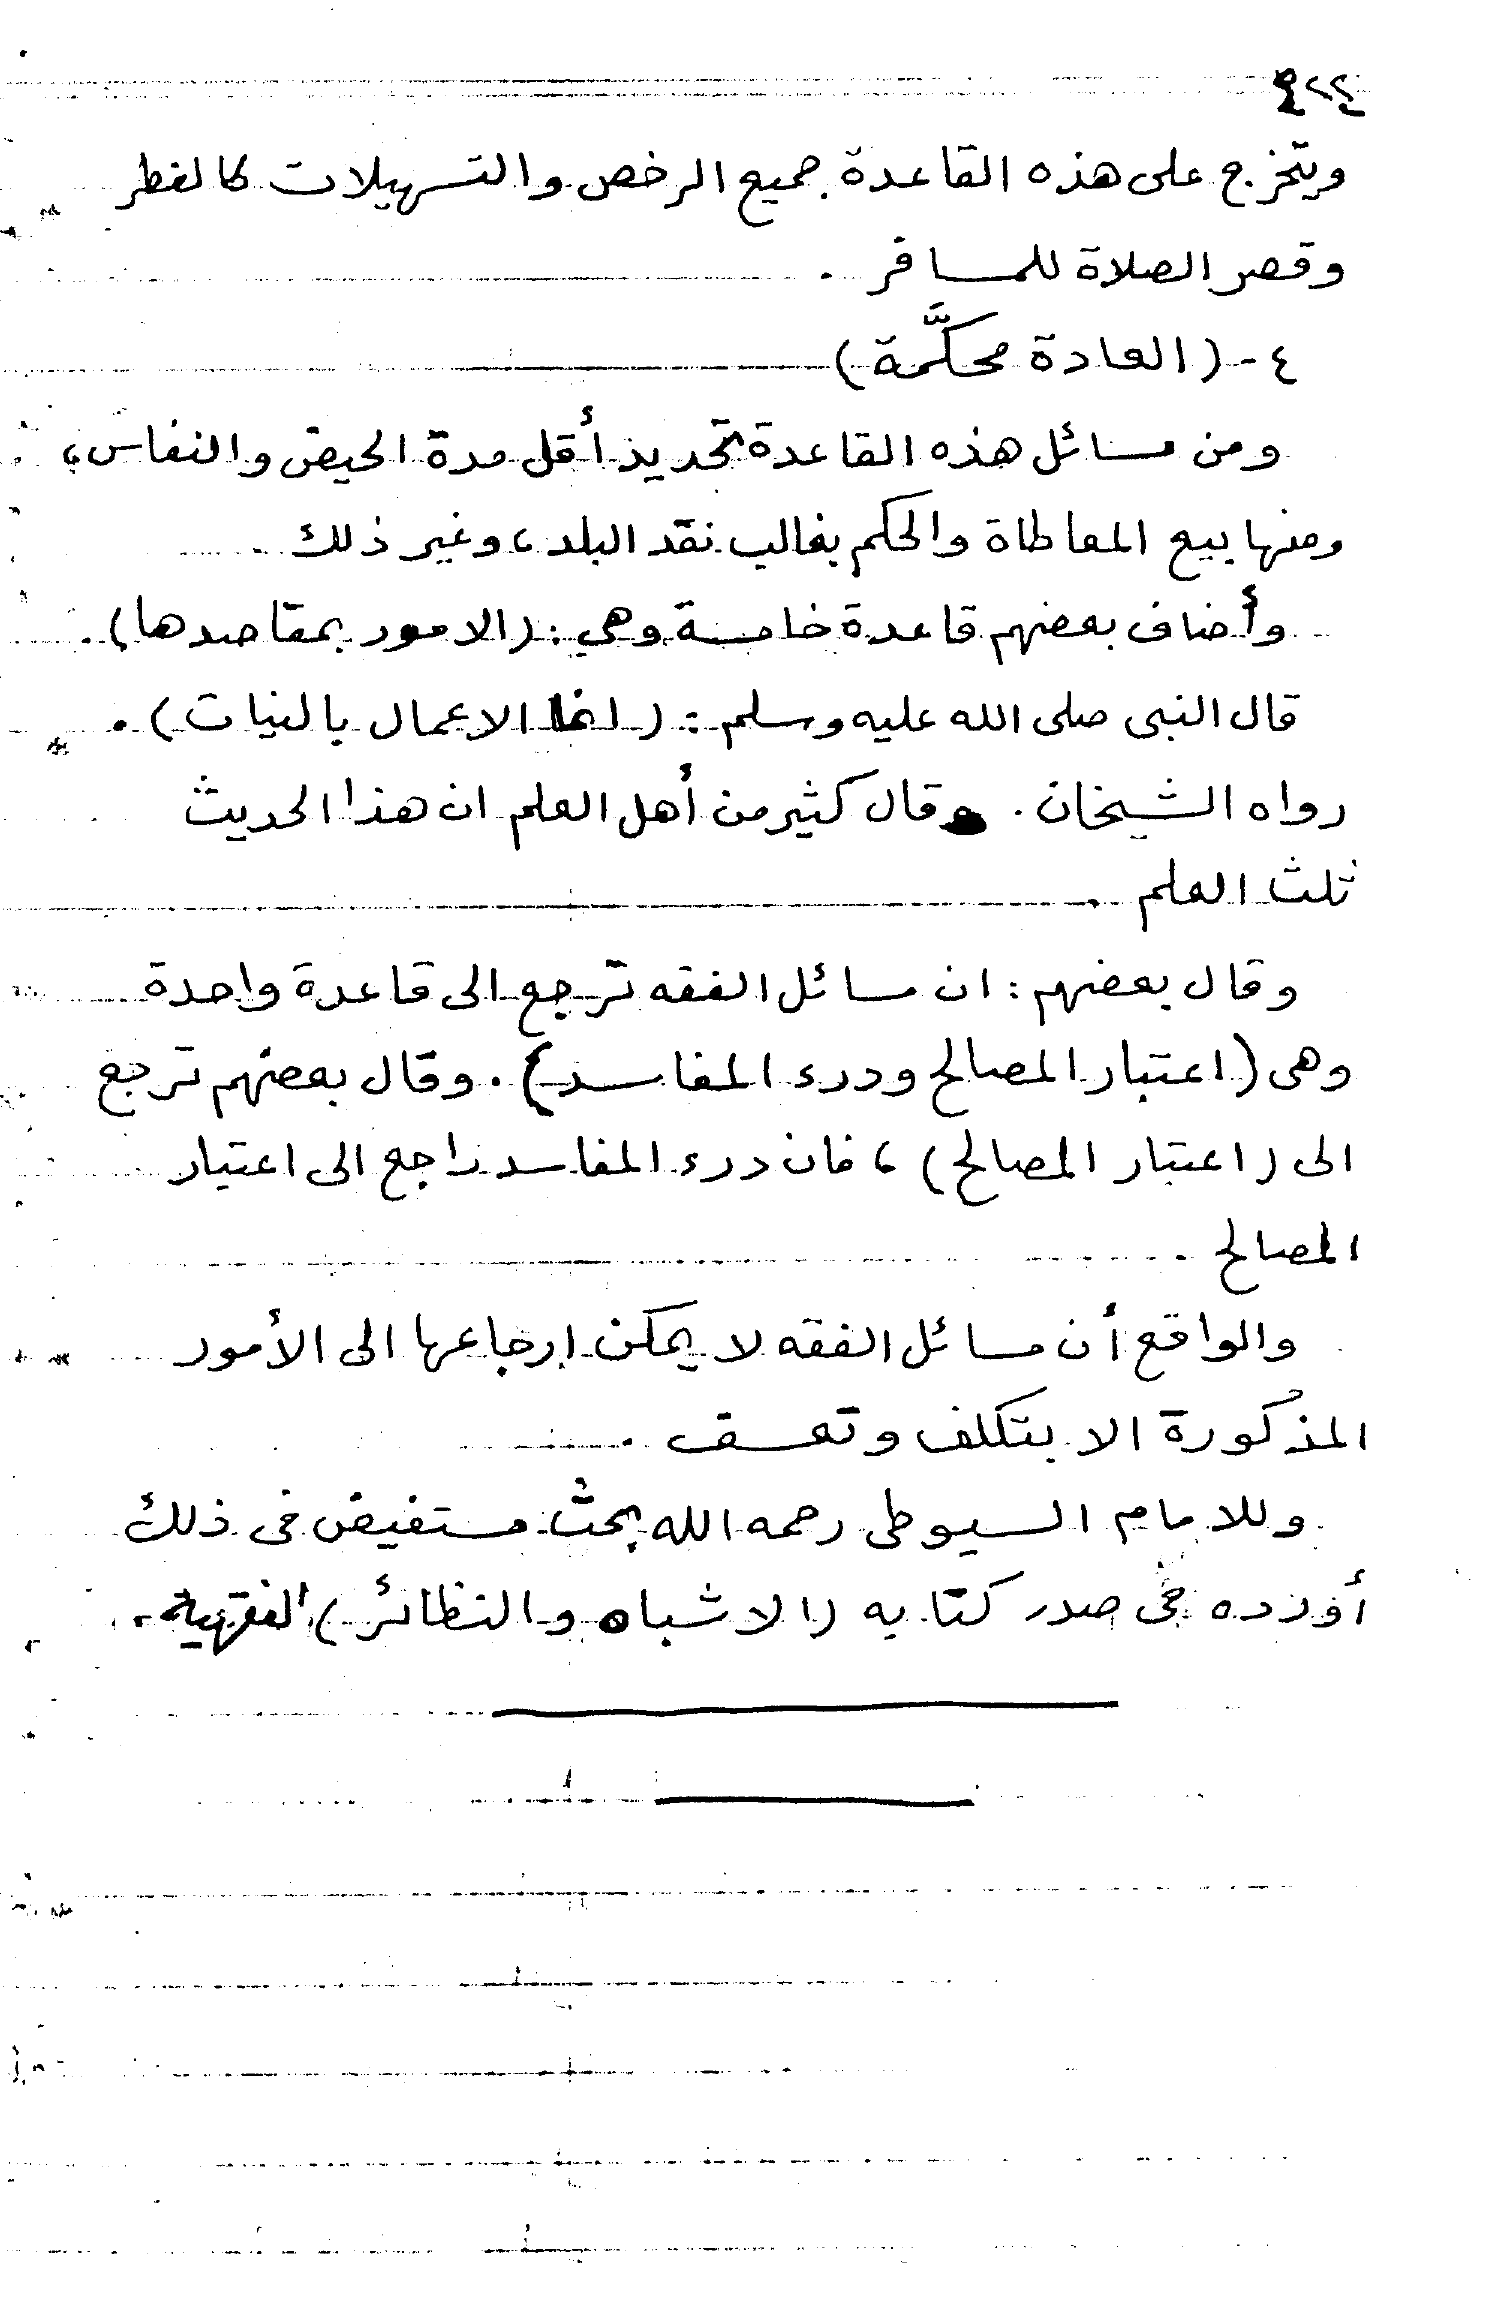 ويتخرج على هذه القاعدة جميع الرخص والتسهيلات كالفطر
وقصر الصلاة للمسافر .
٤ - ( العادة محكَّمة )
ومن مسائل هذه القاعدة تحديد أقل مدة الحيض والنفاس ،
ومنها بيع المعاطاة والحكم بغالب نقد البلد ، وغير ذلك .
وأضاف بعضهم قاعدة خامسة وهي : ( الامور بمقاصدها ) .
قال النبى صلى الله عليه وسلم : ( انما الاعمال بالنيات ) .
رواه الشيخان . وقال كثير من أهل العلم ان هذا الحديث
ثلث العلم .
وقال بعضهم : ان مسائل الفقه ترجع الى قاعدة واحدة
وهى ( اعتبار المصالح ودرء المفاسد ) . وقال بعضهم ترجع
الى ( اعتبار المصالح ) ، فان درء المفاسد راجع الى اعتبار
المصالح .
والواقع أن مسائل الفقه لا يمكن ارجاعها الى الأمور
المذكورة الا بتكلف وتعسف .
وللامام السيوطى رحمه الله بحث مستفيض فى ذلك
أورده فى صدر كتابه ( الاشباه والنظائر ) الفقهية .